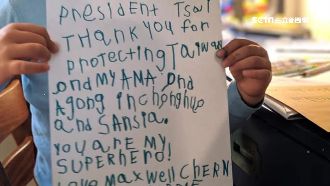 president Tsai
THANK YOU for
protecting Taiwan
and my AMA and
Agong in chonghue
and Sansia.
you are my
SUPERHERO!
Love Maxwell CHERN